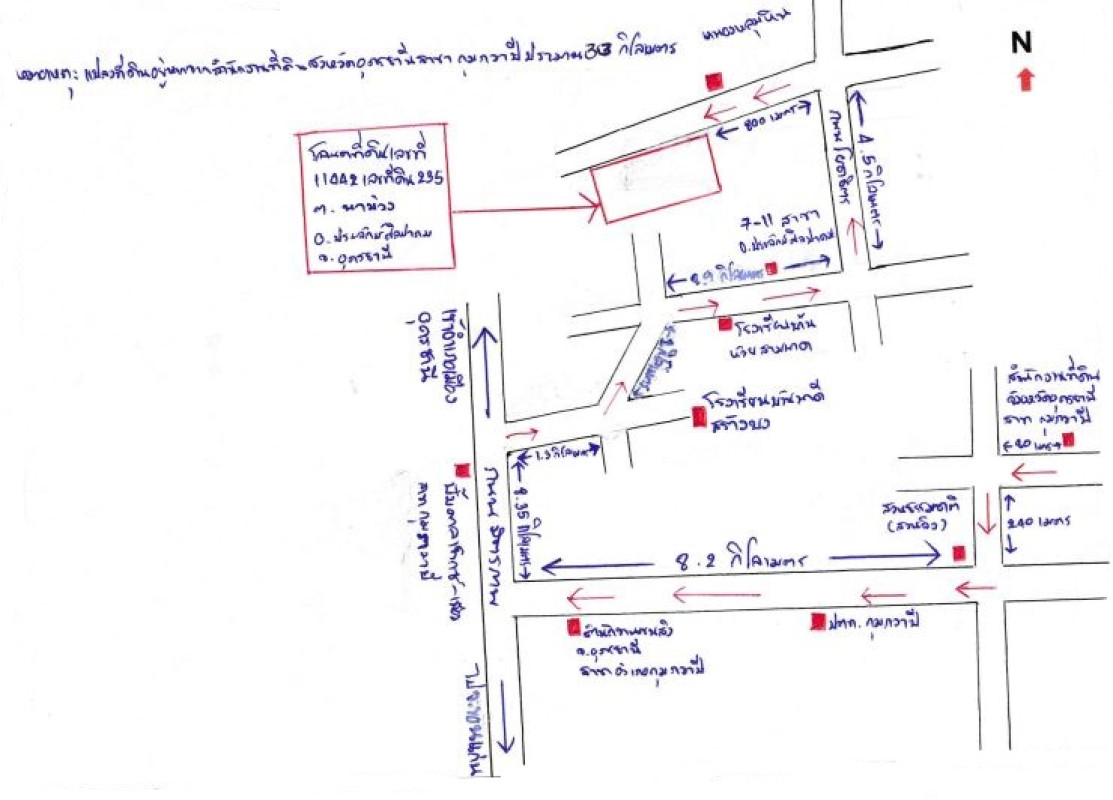 หมายเหตุ: แปลงที่ดินอยู่ห่างจากสำนักงานที่ดินจังหวัดอุดรธานีสาขา กุมภวาปี ประมาณ 33 กิโลเมตร
N
800 เมตร
โฉนดที่ดินเลขที่
11042 เลขที่ดิน 235
ต. นาม่วง
อ. ประจักษ์ศิลปาคม
จ. อุดรธานี
4.5 กิโลเมตร
7-11 สาขา
อ. ประจักษ์ศิลปาคม
กิโลเมตร
โรงเรียนบ้าน
ห้วยสามพาด
เข้าอำเภอเมือง
อุดรธานี
โรงเรียนบ้าน
1.3 กิโลเมตร
ถนน มิตรภาพ
.35 กิโลเมตร
สำนักงานที่ดิน
จังหวัดอุดรธานี
สาขา กุมภวาปี
เมตร
240 เมตร
สวนธรรมชาติ
8.2 กิโลเมตร
สำนักงานขนส่ง
จ. อุดรธานี
สาขาอำเภอกุมภวาปี
ปตท. กุมภวาปี
ไปจ.ขอนแก่น